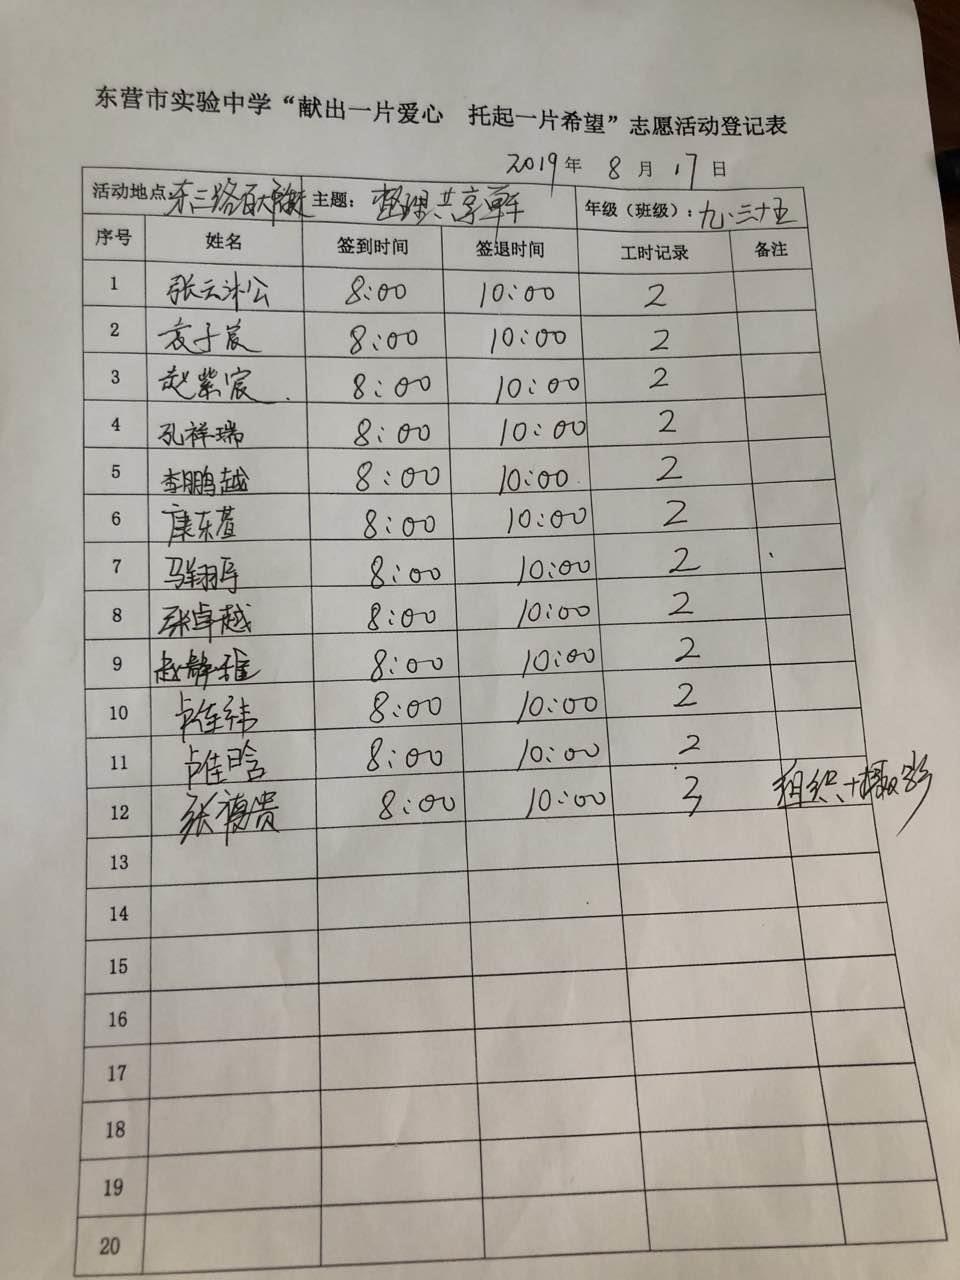 东营市实验中学“献出一片爱心 托起一片希望”志愿活动登记表
2019年 8月 17日
活动地点 东三路百大 主题: 整理共享单车 年级（班级）: 九.三十五
序号 姓名 签到时间 签退时间 工时记录 备注
1 张云 8:00 10:00 2
2 袁子宸 8:00 10:00 2
3 赵紫宸 8:00 10:00 2
4 孔祥瑞 8:00 10:00 2
5 李鹏越 8:00 10:00 2
6 康东萱 8:00 10:00 2
7 马翔宇 8:00 10:00 2
8 张卓越 8:00 10:00 2
9 赵静雅 8:00 10:00 2
10 卢连纬 8:00 10:00 2
11 卢佳晗 8:00 10:00 2
12 张德贵 8:00 10:00 3 组织+摄影
13
14
15
16
17
18
19
20